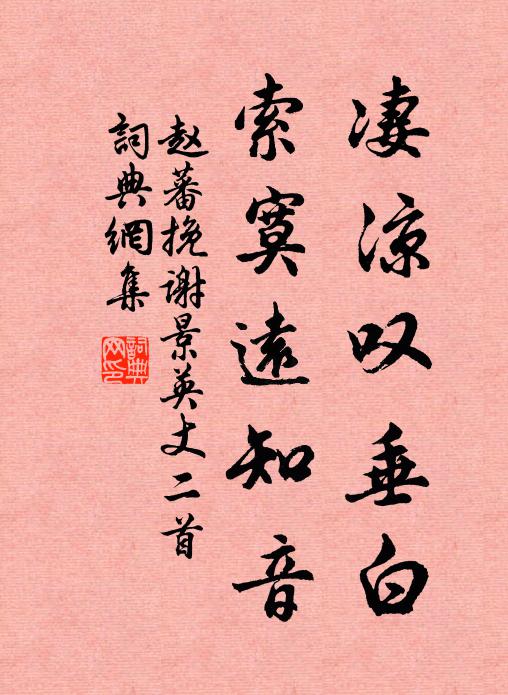 凄凉叹垂白
索寞遠知音
赵蕃挽谢景英丈二首
詞典網集
詞典网印